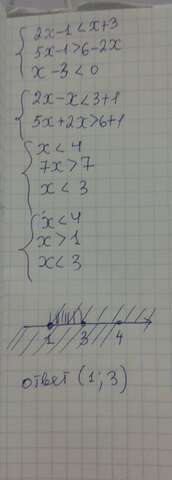 2x-1<x+3
5x-1>6-2x
x-3<0
2x-x<3+1
5x+2x>6+1
x<4
7x>7
x<3
x<4
x>1
x<3
1 3 4
ответ (1; 3)